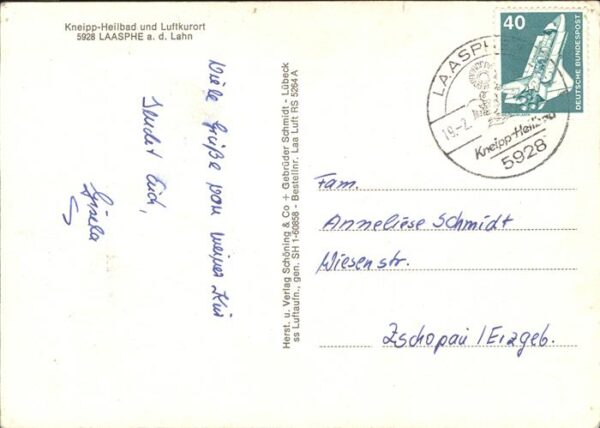 Kneipp-Heilbad und Luftkurort
5928 LAASPHE a. d. Lahn
Viele Grüße von meiner Kur
sendet Euch,
Gisela
Herst. u. Verlag Schöning & Co + Gebrüder Schmidt - Lübeck
ss Luftaufn., gen. SH 1-60858 - Bestellnr. Laa Luft RS 5264 A
40
DEUTSCHE BUNDESPOST
LAASPHE
19.-2.
Kneipp-Heilbad
5928
Fam.
Anneliese Schmidt
Wiesenstr.
Zschopau / Erzgeb.